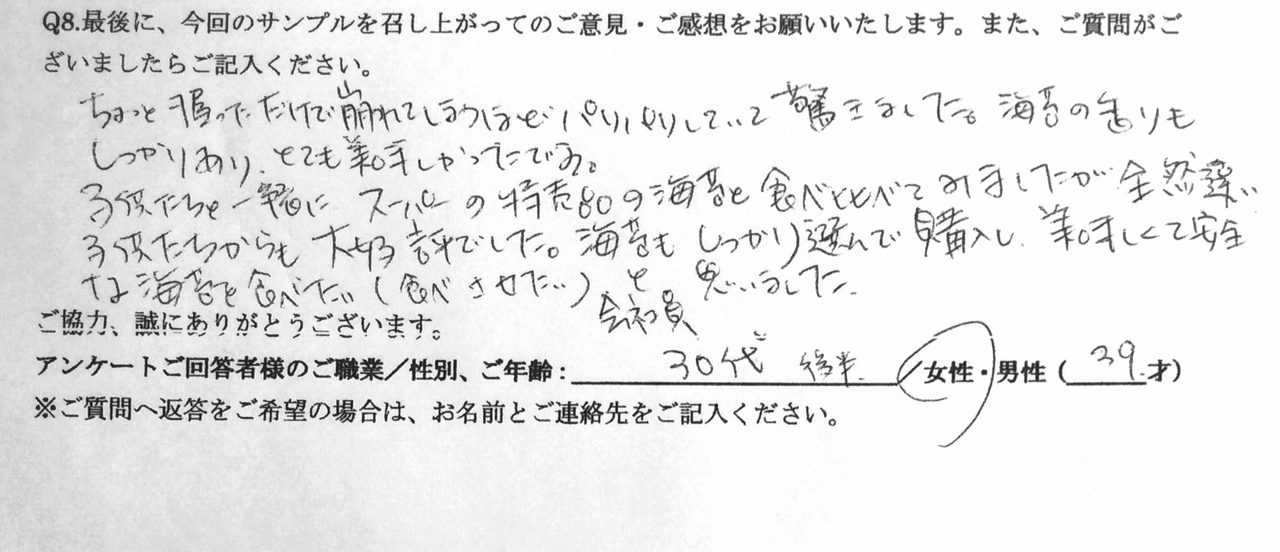 Q8.最後に、今回のサンプルを召し上がってのご意見・ご感想をお願いいたします。また、ご質問がご
ざいましたらご記入ください。
ちょっと握っただけで崩れてしまうほどパリパリしていて驚きました。海苔の香りも
しっかりあり、とても美味しかったです。
子供たちと一緒に スーパーの特売80の海苔と食べくらべてみましたが全然違い
子供たちからも大好評でした。海苔もしっかり選んで購入し、美味しくて安全
な海苔を食べたい(食べさせたい)と思いました。
ご協力、誠にありがとうございます。
会社員
アンケートご回答者様のご職業／性別、ご年齢： 30代 後半 ／女性・男性（39才）
※ご質問へ返答をご希望の場合は、お名前とご連絡先をご記入ください。